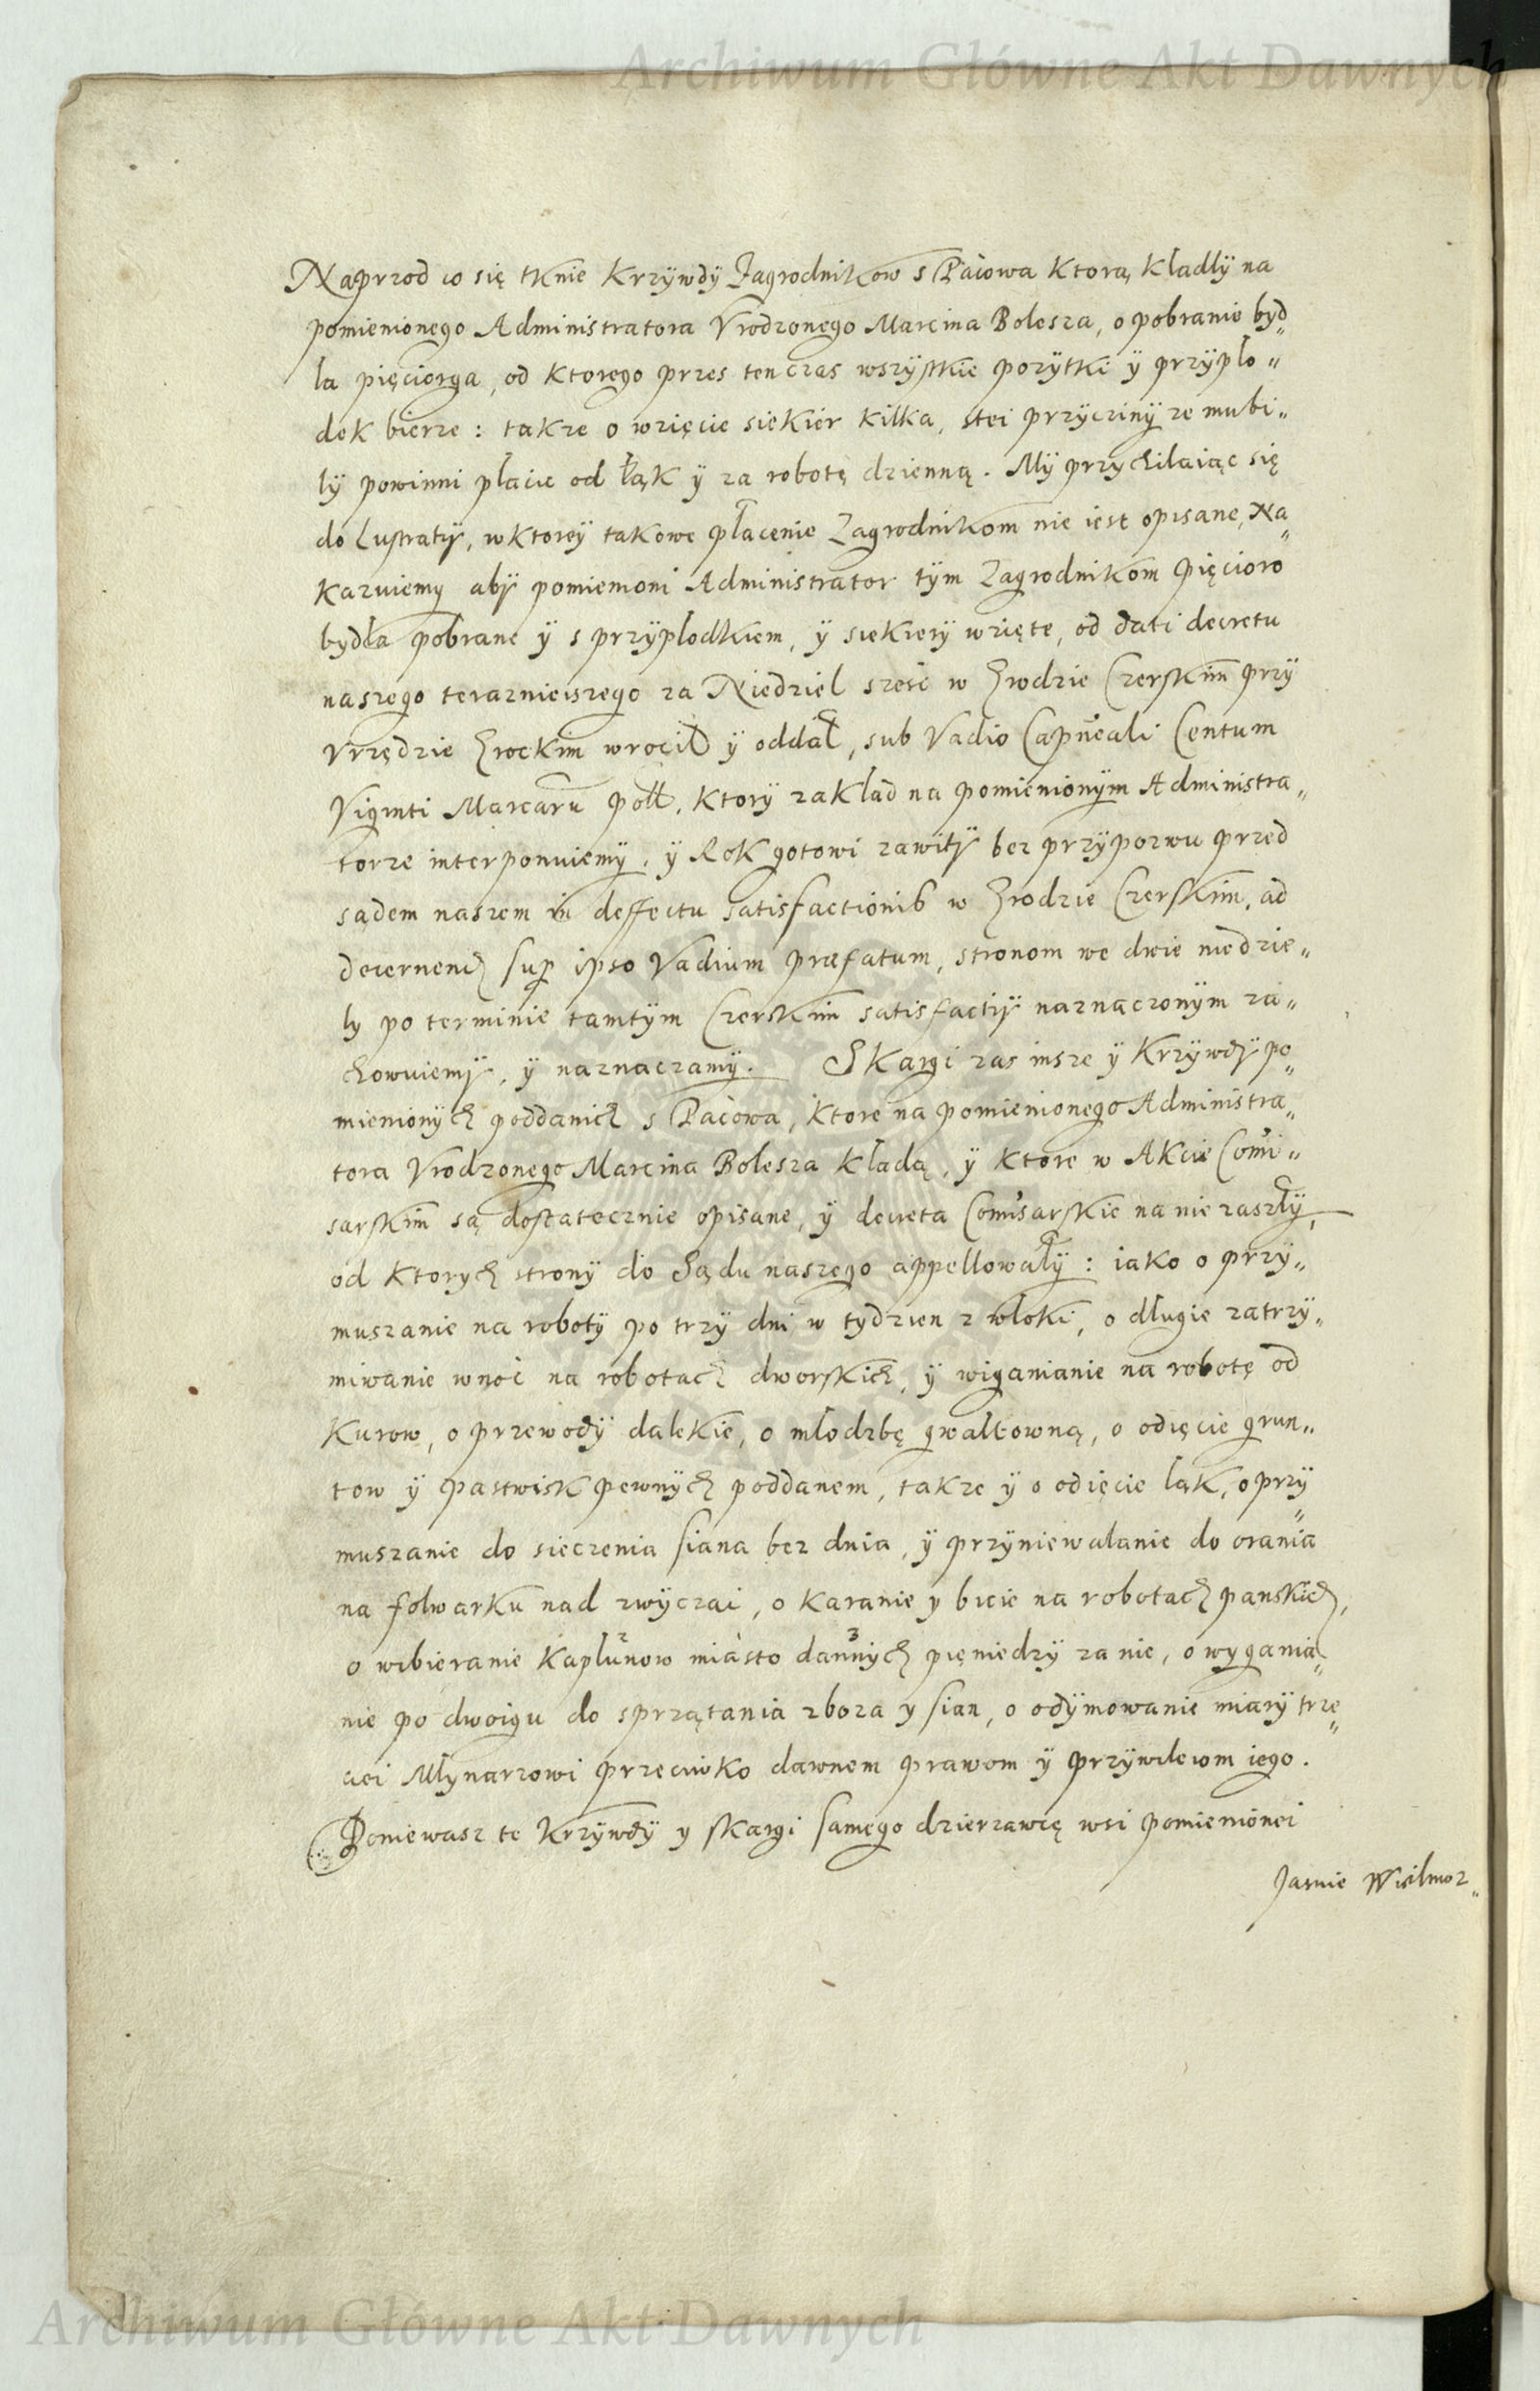 Archiwum Główne Akt Dawnych
Naprzod co się tknie Krzÿwdÿ Zagrodnikow s Paiowa Ktorą Kladlÿ na
pomienionego Administratora Vrodzonego Marcina Bolesza, o pobranie byd„
la pięciorga, od Ktorego przes ten czas wszÿstkie pozÿtki ÿ przÿplo„
dek bierze: takze o wzięcie siekier kilka, stei przÿczinÿ ze mu bi„
lÿ powinni płacic od łąk ÿ za robotę dzienną. Mÿ przychilaiąc się
do Lustratÿ, w ktoreÿ takowe płacenie Zagrodnikom nie iest opisane, Na„
kazuiemy abÿ pomiemoni Administrator tÿm Zagrodnikom Pięcioro
bydła pobrane ÿ s przÿplodkiem, ÿ siekierÿ wzięte, od dati decretu
naszego teraznieiszego za Niedziel szesc w Grodzie Czerskim przÿ
Vrzędzie Grockim wrocił ÿ oddał, sub Vadio Capneali Centum
Viginti Marcaru Poll. Ktorÿ zakład na pomienionÿm Administra„
torze interponuiemÿ, ÿ Rok gotowi zawitÿ bez przÿpozwu przed
sądem naszem in deffectu satisfactionis w Grodzie Czerskim, ad
decernend sup ipso Vadium præfatum, stronom we dwie niedzie„
lÿ po terminie tamtÿm Czerskim satisfactiÿ naznaczonÿm za„
chowuiemÿ, ÿ naznaczamÿ. Skargi zas insze ÿ Krzÿwdÿ po„
mienionÿch poddanich s Paiowa, Ktore na pomienionego Administra„
tora Vrodzonego Marcina Bolesza Kładą, ÿ Ktore w Akcie Comi„
sarskim są dostatecznie opisane, ÿ decreta Comisarskie na nie zaszłÿ,
od Ktorÿch stronÿ do Sądu naszego appellowałÿ: iako o przy„
muszanie na robotÿ po trzÿ dni w tydzien z włoki, o długie zatrzy„
miwanie w noc na robotach dworskich, ÿ wiganianie na robotę od
Kurow, o przewodÿ dalekie, o młodzbę gwałtowną, o odięcie grun„
tow ÿ pastwisk pewnÿch poddanem, takze ÿ o odięcie ląk, o przÿ„
muszanie do sieczenia siana bez dnia, ÿ przÿniewalanie do orania
na folwarku nad zwÿczai, o karanie y bicie na robotach panskich,
o wibieranie Kapłunow miasto dawnÿch pięniedzÿ za nie, o wygania„
nie po dwoigu do sprzątania zboza y sian, o odÿmowanie miarÿ trze„
ciei Młynarzowi przeciwko dawnem prawom ÿ przÿwileiom iego.
Poniewasz te Krzÿwdÿ y skargi samego dzierzawcę wsi pomienionei
Jasnie Wielmoz„
Archiwum Główne Akt Dawnych